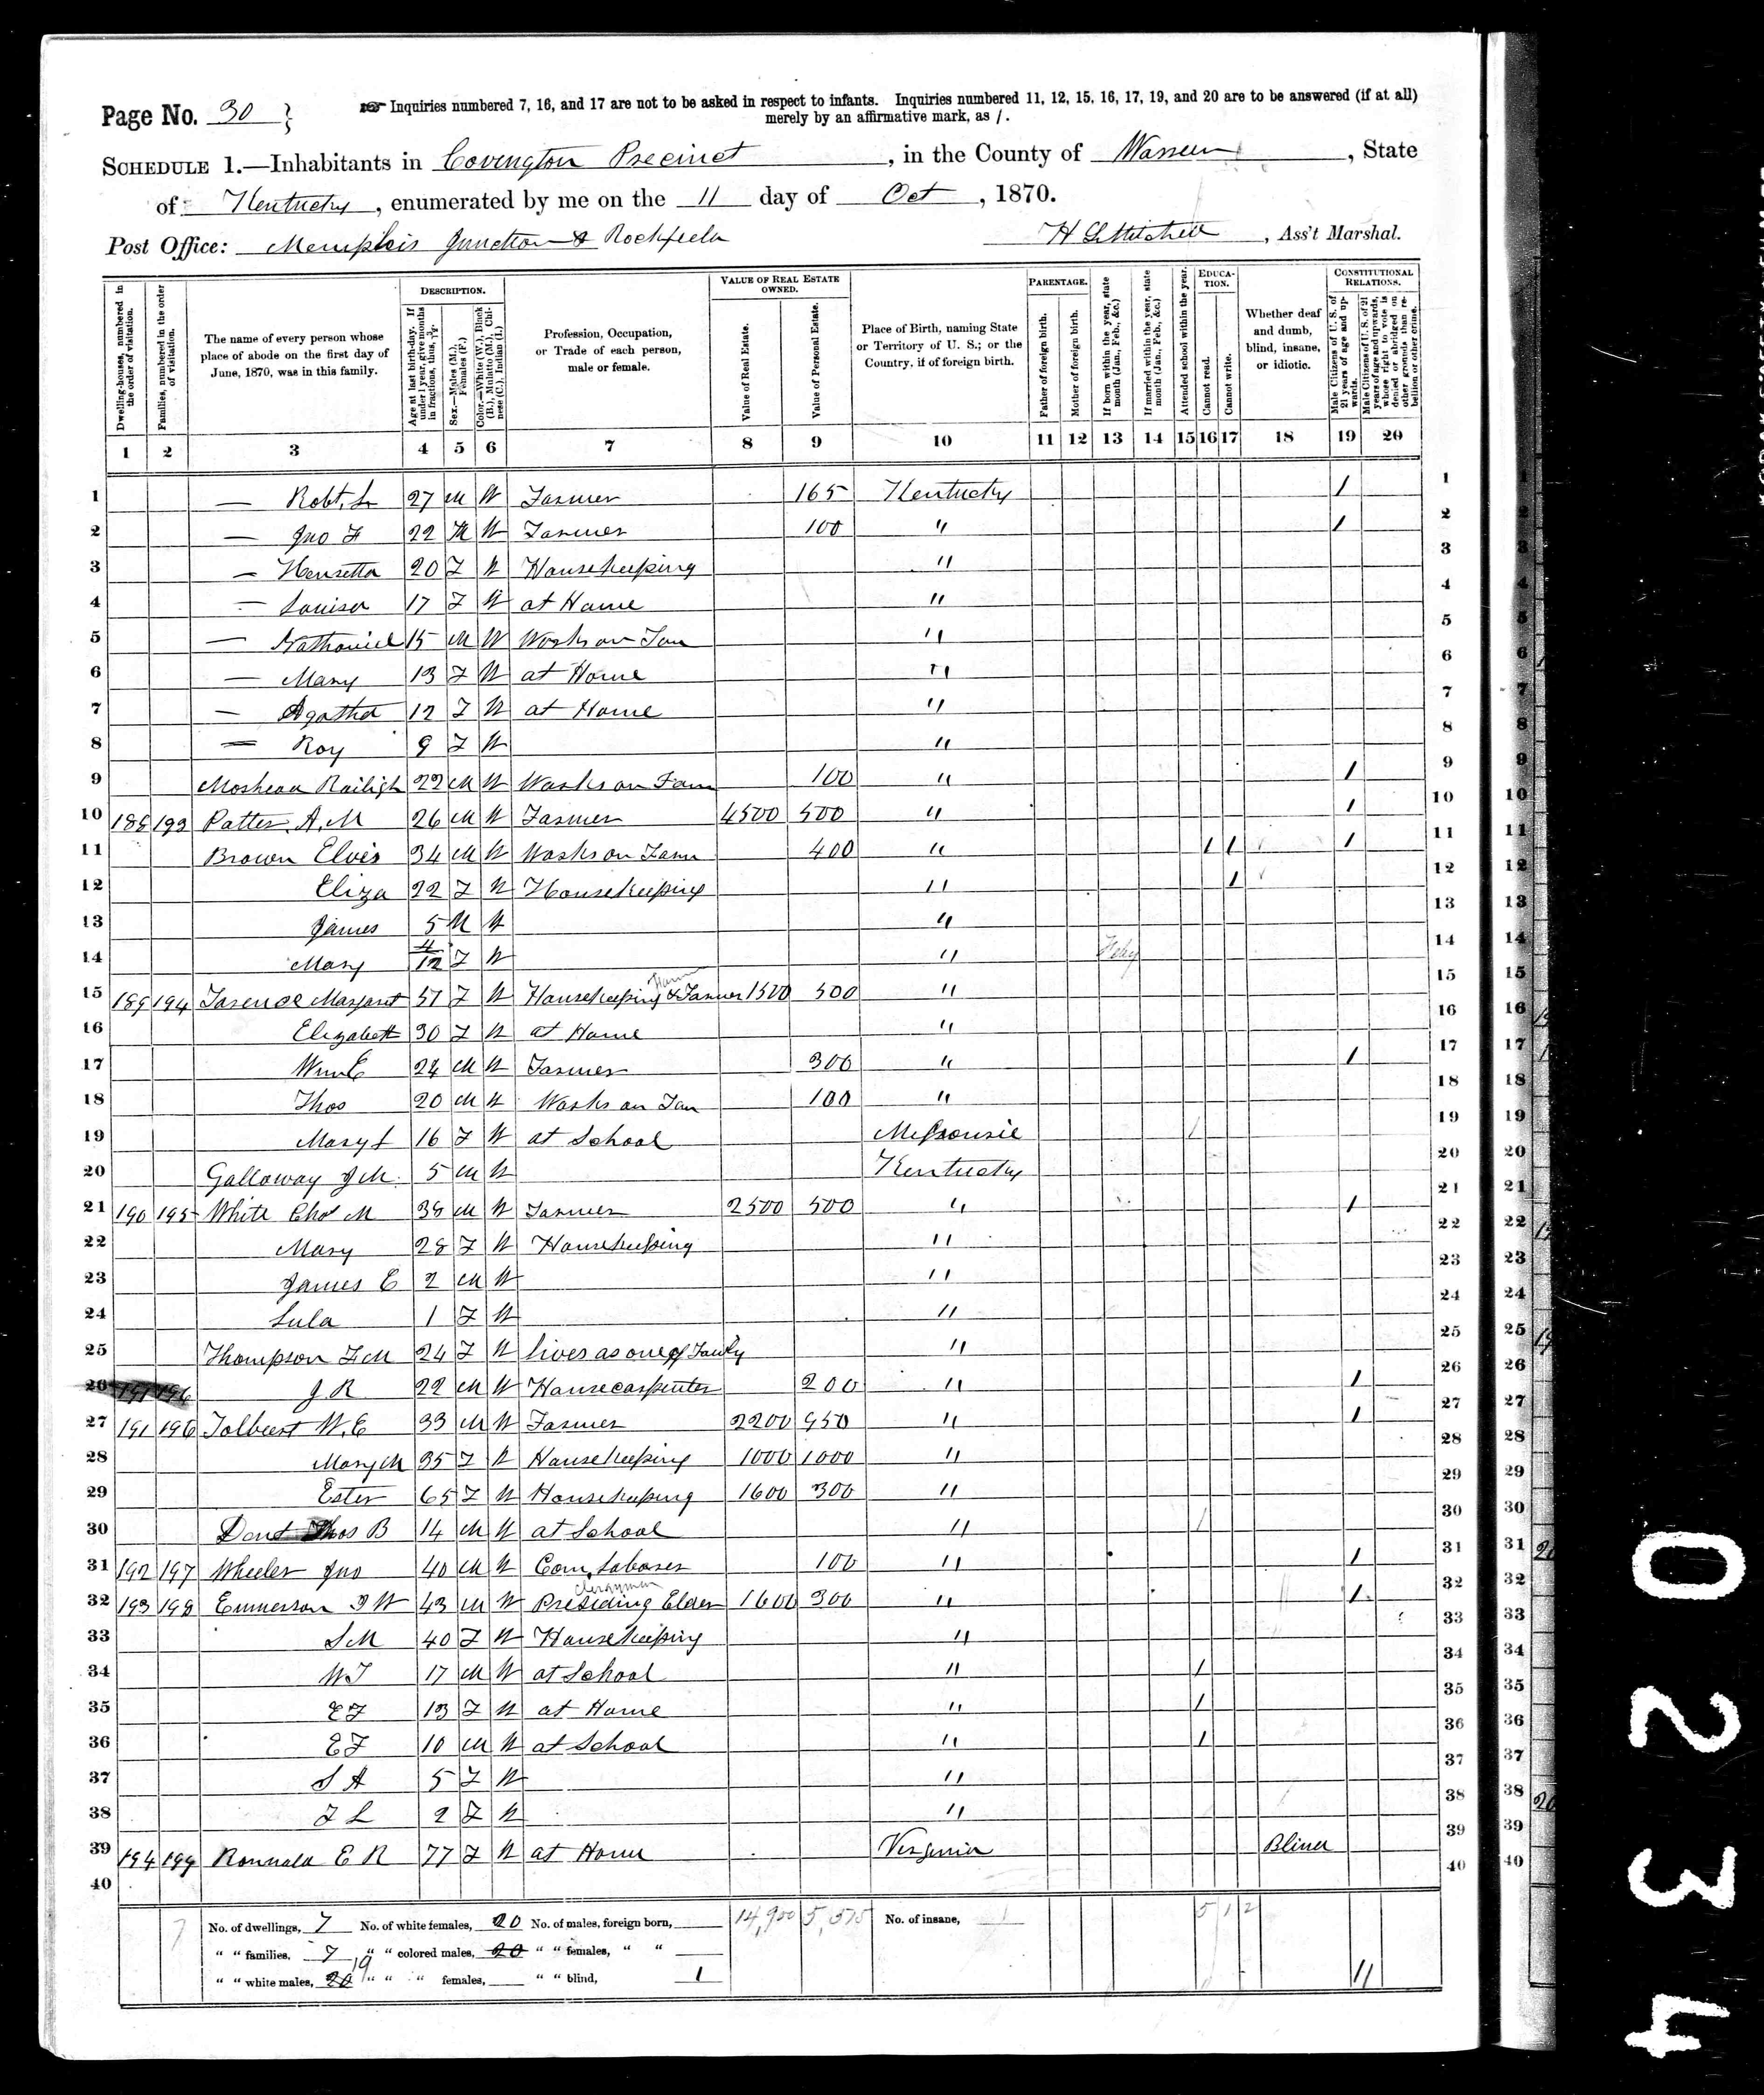 Page No. 30
Inquiries numbered 7, 16, and 17 are not to be asked in respect to infants. Inquiries numbered 11, 12, 15, 16, 17, 19, and 20 are to be answered (if at all)
merely by an affirmative mark, as /.
SCHEDULE 1.—Inhabitants in Covington Precinct, in the County of Warren, State
of Kentucky, enumerated by me on the 11 day of Oct, 1870.
Post Office: Memphis Junction & Rockfield
H Mitchell, Ass't Marshal.
Dwelling-houses, numbered in the order of visitation.
Families, numbered in the order of visitation.
The name of every person whose place of abode on the first day of June, 1870, was in this family.
DESCRIPTION.
Age at last birth-day. If under 1 year, give months in fractions, thus, 3/12.
Sex.—Males (M.), Females (F.)
Color.—White (W.), Black (B.), Mulatto (M.), Chinese (C.), Indian (I.)
Profession, Occupation, or Trade of each person, male or female.
VALUE OF REAL ESTATE OWNED.
Value of Real Estate.
Value of Personal Estate.
Place of Birth, naming State or Territory of U. S.; or the Country, if of foreign birth.
PARENTAGE.
Father of foreign birth.
Mother of foreign birth.
If born within the year, state month (Jan., Feb., &c.)
If married within the year, state month (Jan., Feb., &c.)
Attended school within the year.
EDUCATION.
Cannot read.
Cannot write.
Whether deaf and dumb, blind, insane, or idiotic.
CONSTITUTIONAL RELATIONS.
Male Citizens of U. S. of 21 years of age and upwards.
Male Citizens of U. S. of 21 years of age and upwards, whose right to vote is denied or abridged on other grounds than rebellion or other crime.
1 2 3 4 5 6 7 8 9 10 11 12 13 14 15 16 17 18 19 20
1 — Robt. L 27 M W Farmer 165 Kentucky / 1
2 — Jno F 22 M W Farmer 100 " / 2
3 — Henretta 20 F W Housekeeping " 3
4 — Louisa 17 F W at Home " 4
5 — Nathaniel 15 M W Works on Fam " 5
6 — Mary 13 F W at Home " 6
7 — Agatha 12 F W at Home " 7
8 — Roy 9 F W " 8
9 Raileigh 22 M W Works on Farm 100 " / 9
10 188 193 Potter A. M 26 M W Farmer 4500 500 " / 10
11 Brown Elvis 34 M W Works on Farm 400 " / / / 11
12 Eliza 22 F W Housekeeping " / 12
13 James 5 M W " 13
14 Mary 4/12 F W " Feby 14
15 189 194 Margaret 57 F W Housekeeping & Farmer 1500 500 " 15
16 Elizabeth 30 F W at Home " 16
17 Wm E 24 M W Farmer 300 " / 17
18 Thos 20 M W Works on Fam 100 " 18
19 Mary J 16 F W at School Missourie / 19
20 Galloway J M. 5 M W Kentucky 20
21 190 195 White Chas M 38 M W Farmer 2500 500 " / 21
22 Mary 28 F W Housekeeping " 22
23 James E 2 M W " 23
24 Lula 1 F W " 24
25 Thompson F M 24 F W lives as one of Family " 25
26 191 196 J R 22 M W House carpenter 200 " / 26
27 191 196 Tolbert W. E 33 M W Farmer 2200 950 " / 27
28 Mary M 35 F W Housekeeping 1000 1000 " 28
29 Ester 65 F W Housekeeping 1600 300 " 29
30 Dent Thos B 14 M W at School " / 30
31 192 197 Wheeler Jno 40 M W Com. Laborer 100 " / 31
clergyman
32 193 198 Emmerson I W 43 M W Presiding Elder 1600 300 " / 32
33 S M 40 F W Housekeeping " 33
34 W T 17 M W at School " / 34
35 E F 13 F W at Home " / 35
36 E F 10 M W at School " / 36
37 S A 5 F W " 37
38 F L 2 F W " 38
39 194 199 E R 77 F W at Home Virginia Blind 39
40 40
No. of dwellings, 7 No. of white females, 20 No. of males, foreign born, 14,900 5,515 No. of insane, 5 1 2
7
" " families, 7 " " colored males, 20 " " females, " "
" " white males, 20 19 " " " females, " " blind, 1 11
0234